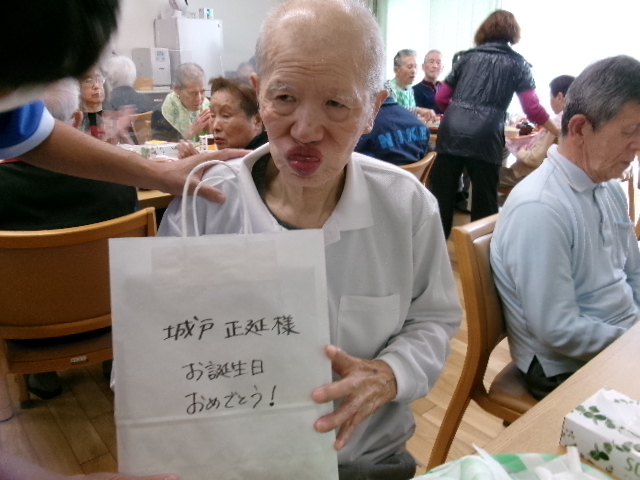 城戸 正延様
お誕生日
おめでとう!
NIKE